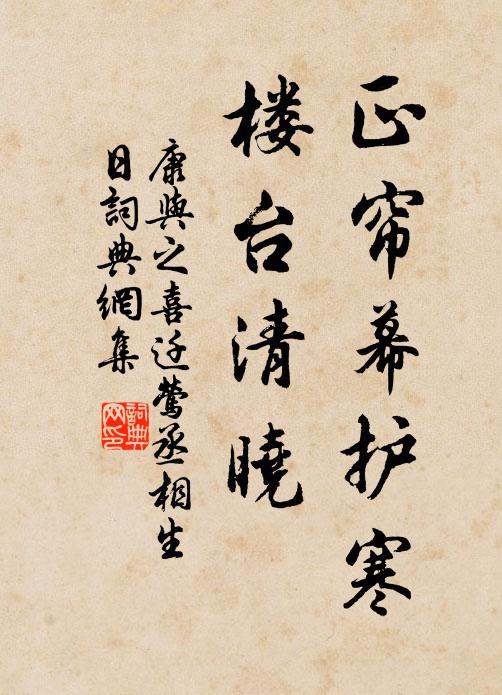 正帘幕护寒
楼台清曉
康與之喜迁莺丞相生
日詞典網集
詞典
网印